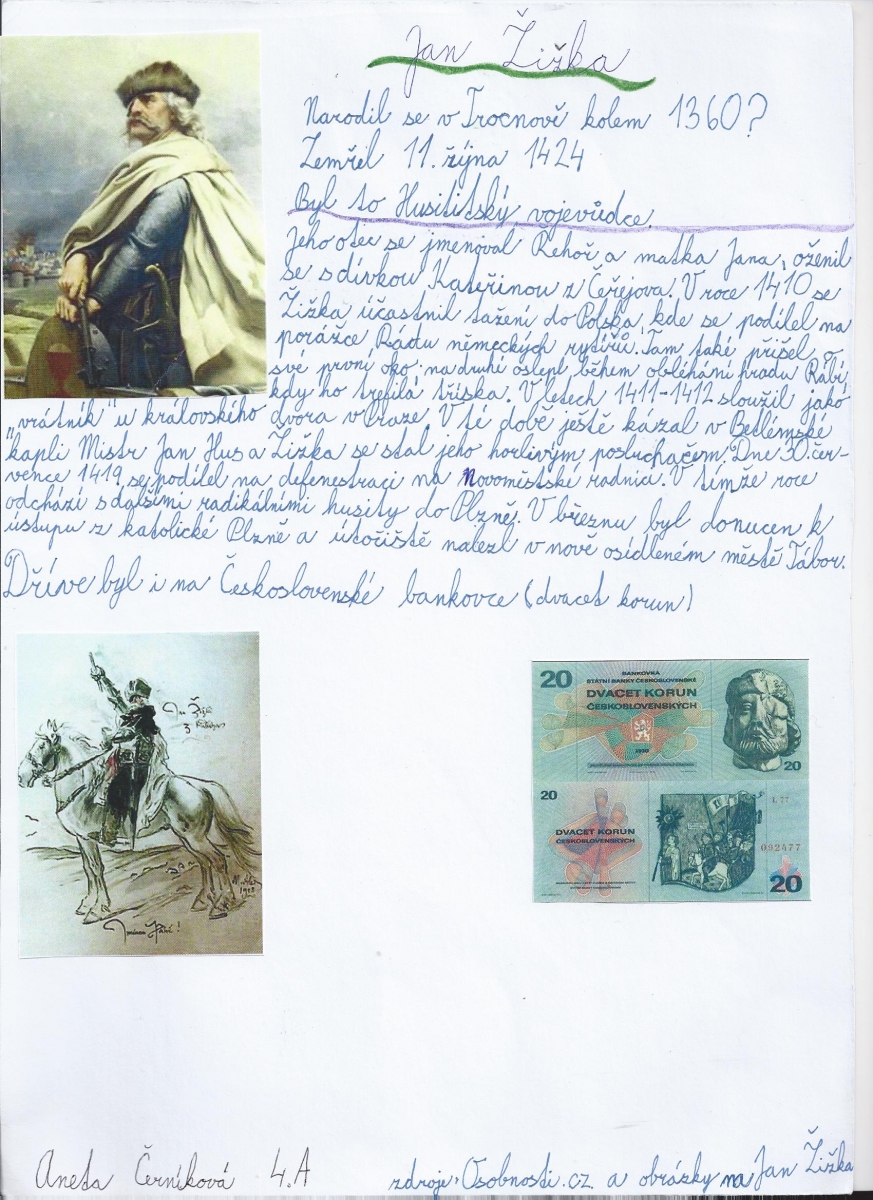 Jan Žižka
Narodil se v Trocnově kolem 1360?
Zemřel 11. října 1424
Byl to Husititský vojevůdce.
Jeho otec se jmenoval Řehoř a matka Jana, oženil
se s dívkou Kateřinou z Čeřejova. V roce 1410 se
Žižka účastnil tažení do Polska, kde se podílel na
porážce Řádu německých rytířů. Tam také přišel o
své první oko, na druhé oslepl během obléhání hradu Rábí,
kdy ho trefila tříska. V letech 1411-1412 sloužil jako
„vrátník" u královského dvora v Praze. V té době ještě kázal v Betlémské
kapli Mistr Jan Hus a Žižka se stal jeho horlivým posluchačem. Dne 30. čer-
vence 1419 se podílel na defenestraci na Novoměstské radnici. V témže roce
odchází s dalšími radikálními husity do Plzně. V březnu byl donucen k
ústupu z katolické Plzně a útočiště nalezl v nově osídleném městě Tábor.
Dříve byl i na Československé bankovce (dvacet korun)
20
BANKOVKA
STÁTNÍ BANKY ČESKOSLOVENSKÉ
DVACET KORUN
ČESKOSLOVENSKÝCH
1970
20
20
DVACET KORUN
ČESKOSLOVENSKÝCH
L 77
092477
20
Aneta Černíková 4.A
zdroje: Osobnosti.cz a obrázky na Jan Žižka